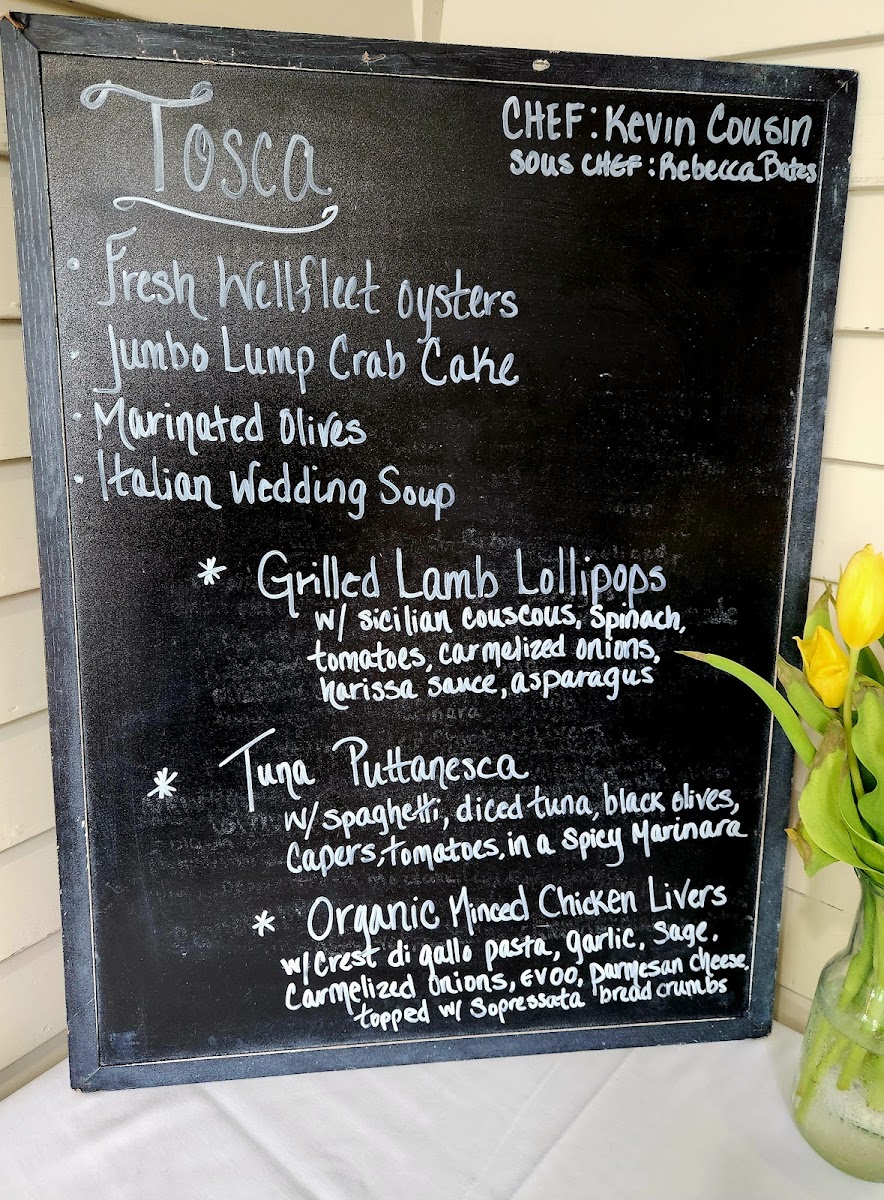 Tosca
CHEF: Kevin Cousin
SOUS CHEF: Rebecca Bates
• Fresh Wellfleet oysters
• Jumbo Lump Crab Cake
• Marinated Olives
• Italian Wedding Soup
* Grilled Lamb Lollipops
w/ sicilian couscous, Spinach,
tomatoes, carmelized onions,
harissa sauce, asparagus
* Tuna Puttanesca
w/ spaghetti, diced tuna, black olives,
Capers, tomatoes, in a Spicy Marinara
* Organic Minced Chicken Livers
w/ Crest di gallo pasta, garlic, Sage,
Carmelized Onions, EVOO, parmesan cheese,
topped w/ Sopressata bread crumbs